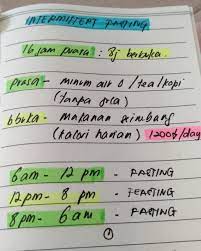 INTERMITTENT FASTING
16 jam puasa : 8j berbuka.
puasa - minum air o / tea / kopi
(tanpa gula)
bbuka - makanan seimbang
(kalori harian) 1200 /day
6am - 12 pm - FASTING
12pm - 8 pm - FEASTING
8pm - 6am - FASTING